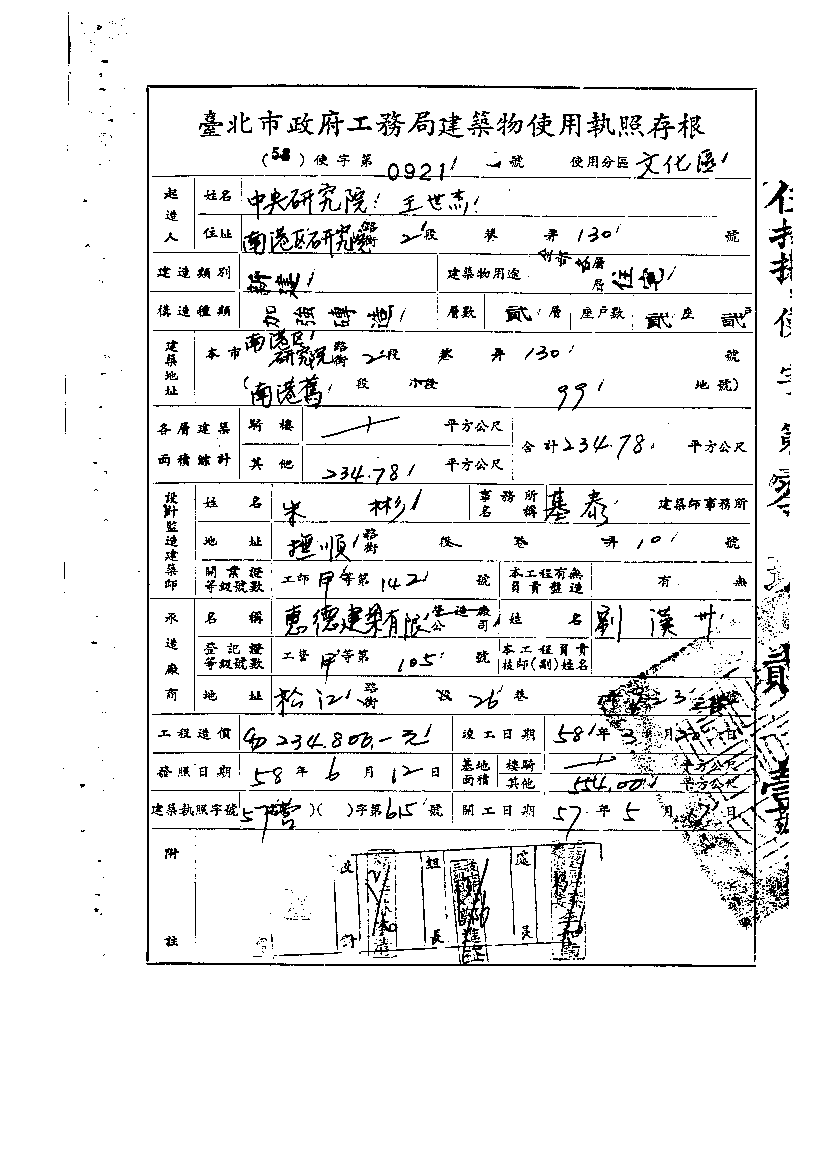 臺北市政府工務局建築物使用執照存根
(58)使字第0921號 使用分區 文化區
起造人 姓名 中央研究院 王世杰
住址 南港區研究院路街 2段 巷 弄 130 號
建造類別 新建 建築物用途 層層 住宅
構造種類 加強磚造 層數 貳層 座戶數 貳座 貳戶
建築地址 本市 南港區研究院路街 2段 巷 弄 130 號
(南港舊 段 小段 99 地號)
各層建築面積總計 騎樓 平方公尺 合計234.78 平方公尺
其他 234.78 平方公尺
設計監造建築師 姓名 朱彬 事務所名稱 基泰 建築師事務所
地址 撫順路街 段 巷 弄 10 號
開業證等級號數 工師甲等第142號 本工程有無負責監造 有 無
承造廠商 名稱 惠德建築有限營造廠公司 姓名 劉漢
登記證等級號數 工營甲等第105號 本工程負責技師(副)姓名
地址 松江路街 段 26巷 23
工程造價 234.806.-元 竣工日期 58年3月20日
發照日期 58年6月12日 基地面積 樓騎 平方公尺
其他 554.00 平方公尺
建築執照字號 57營( )字第615號 開工日期 57年5月17日
附註 組長 處長
使字第零
貳
壹